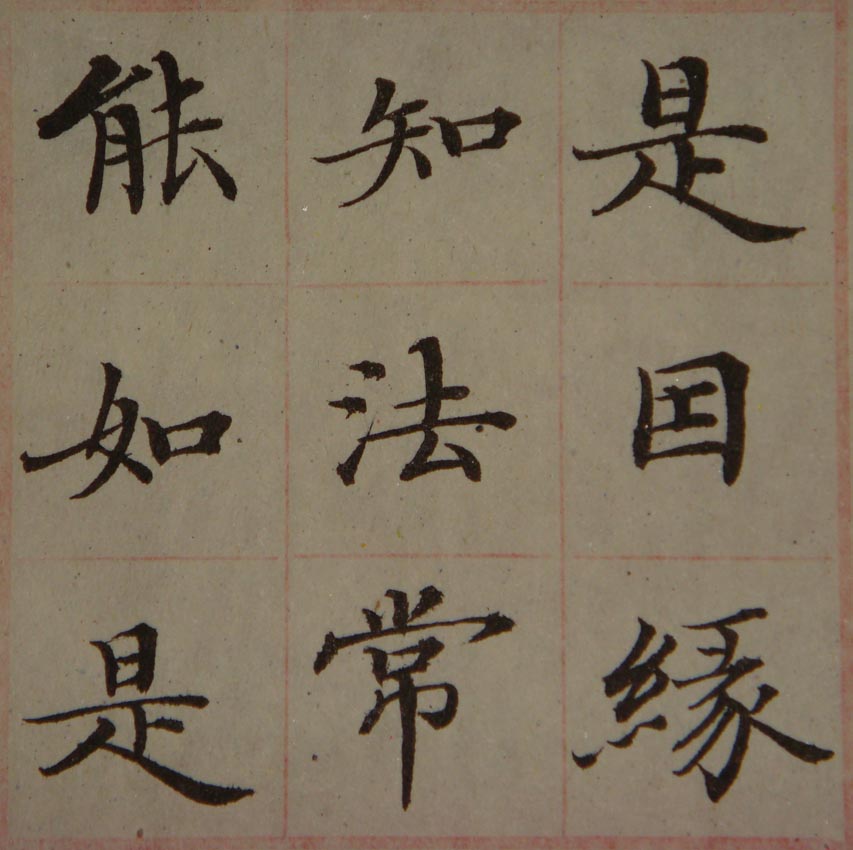 是囙緣
知法常
能如是